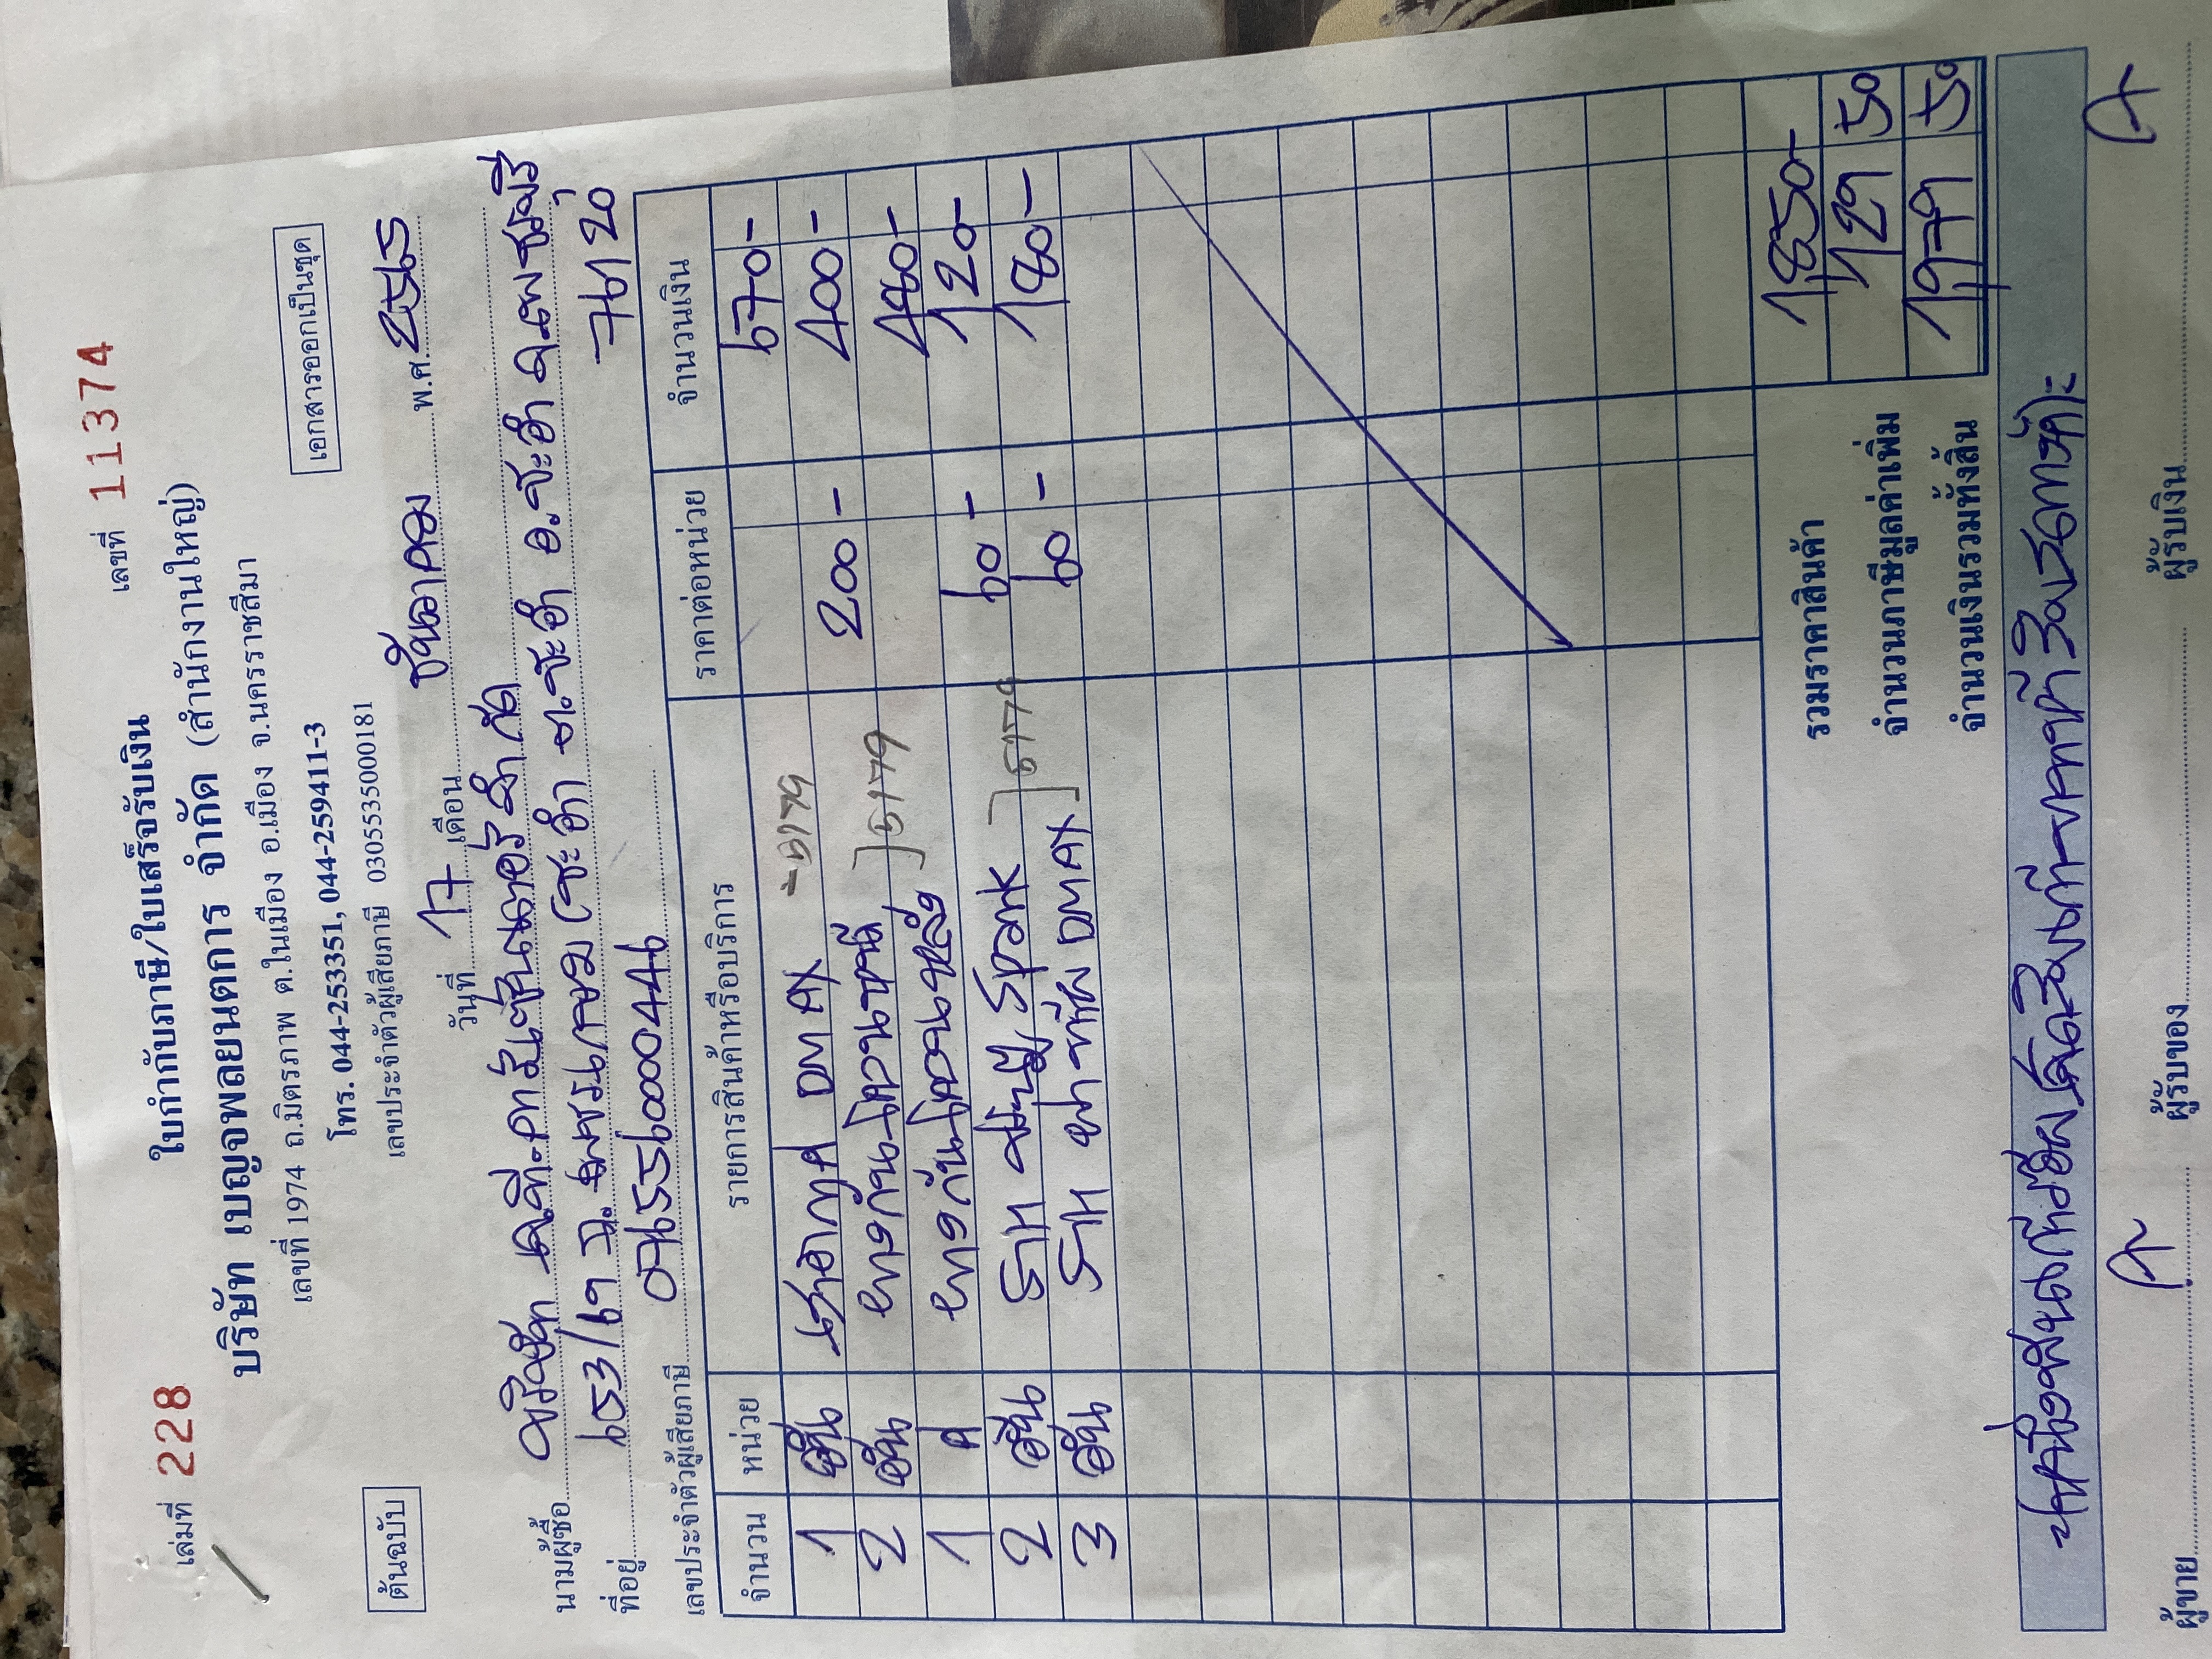 เล่มที่ 228 เลขที่ 11374
ใบกำกับภาษี/ใบเสร็จรับเงิน
บริษัท เบญจพลยนตการ จำกัด (สำนักงานใหญ่)
เลขที่ 1974 ถ.มิตรภาพ ต.ในเมือง อ.เมือง จ.นครราชสีมา
โทร. 044-253351, 044-259411-3
เลขประจำตัวผู้เสียภาษี 0305535000181
ต้นฉบับ เอกสารออกเป็นชุด
วันที่ 17 เดือน ธันวาคม พ.ศ.
นามผู้ซื้อ บริษัท จำกัด
ที่อยู่ 653/ ถ.เพชรเกษม ต.ชะอำ อ.ชะอำ จ.เพชรบุรี
76120
เลขประจำตัวผู้เสียภาษี 0765560000446
จำนวน หน่วย รายการสินค้าหรือบริการ ราคาต่อหน่วย จำนวนเงิน
1 อัน DMAX 5179 670-
2 อัน ยางกันโคลนหน้า 200- 400-
1 คู่ ยางกันโคลนหลัง 5179 480-
2 อัน Spark 60- 120-
3 อัน DMAX 5179 60- 180-
รวมราคาสินค้า 1850-
จำนวนภาษีมูลค่าเพิ่ม 129 50
จำนวนเงินรวมทั้งสิ้น 1979 50
หนึ่งพันเก้าร้อยเจ็ดสิบเก้าบาทห้าสิบสตางค์
ผู้ขาย ผู้รับของ ผู้รับเงิน